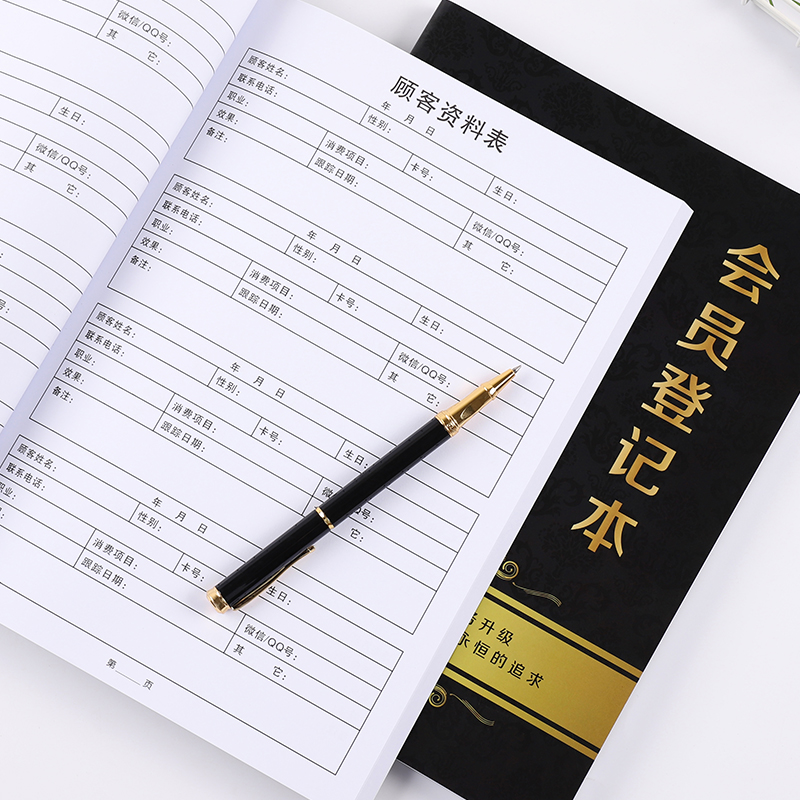 微信/QQ号：
其 它：
生日：
微信/QQ号：
其 它：
生日：
微信/QQ号：
其 它：
生日：
微信/QQ号：
其 它：
顾客资料表
年 月 日
顾客姓名：
联系电话： 性别： 生日：
职业： 卡号： 微信/QQ号：
效果： 消费项目： 其 它：
备注： 跟踪日期：
年 月 日
顾客姓名：
联系电话： 性别： 生日：
职业： 卡号： 微信/QQ号：
效果： 消费项目： 其 它：
备注： 跟踪日期：
年 月 日
顾客姓名：
联系电话： 性别： 生日：
职业： 卡号： 微
效果： 消费项目： 它：
备注： 跟踪日期：
年 月 日
顾客姓名：
联系电话： 性别： 生日：
职业： 卡号： 微信/QQ号：
效果： 消费项目： 其 它：
备注： 跟踪日期：
第____页
会员登记本
升级
永恒的追求